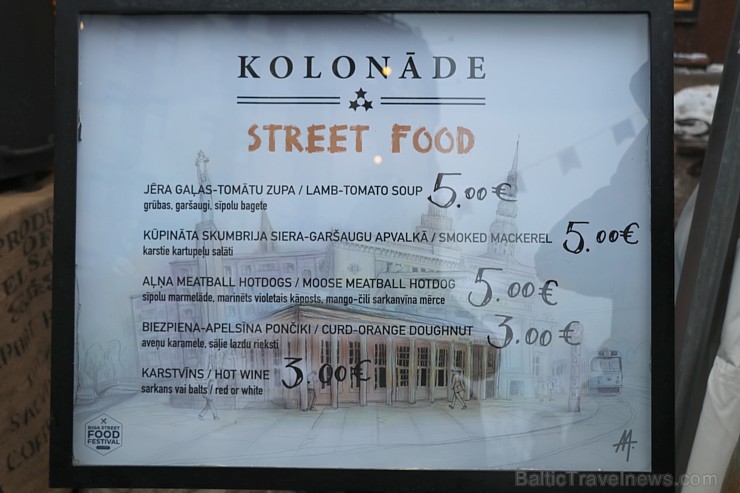 KOLONĀDE
STREET FOOD
JĒRA GAĻAS-TOMĀTU ZUPA / LAMB-TOMATO SOUP 5.00€
grūbas, garšaugi, sīpolu bagete
KŪPINĀTA SKUMBRIJA SIERA-GARŠAUGU APVALKĀ / SMOKED MACKEREL 5.00€
karstie kartupeļu salāti
AĻŅA MEATBALL HOTDOGS / MOOSE MEATBALL HOTDOG 5.00€
sīpolu marmelāde, marinēts violetais kāposts, mango-čili sarkanvīna mērce
BIEZPIENA-APELSĪNA PONČIKI / CURD-ORANGE DOUGHNUT 3.00€
aveņu karamele, sāļie lazdu rieksti
KARSTVĪNS / HOT WINE 3.00€
sarkans vai balts / red or white
RIGA STREET
FOOD
FESTIVAL
BalticTravelnews.com